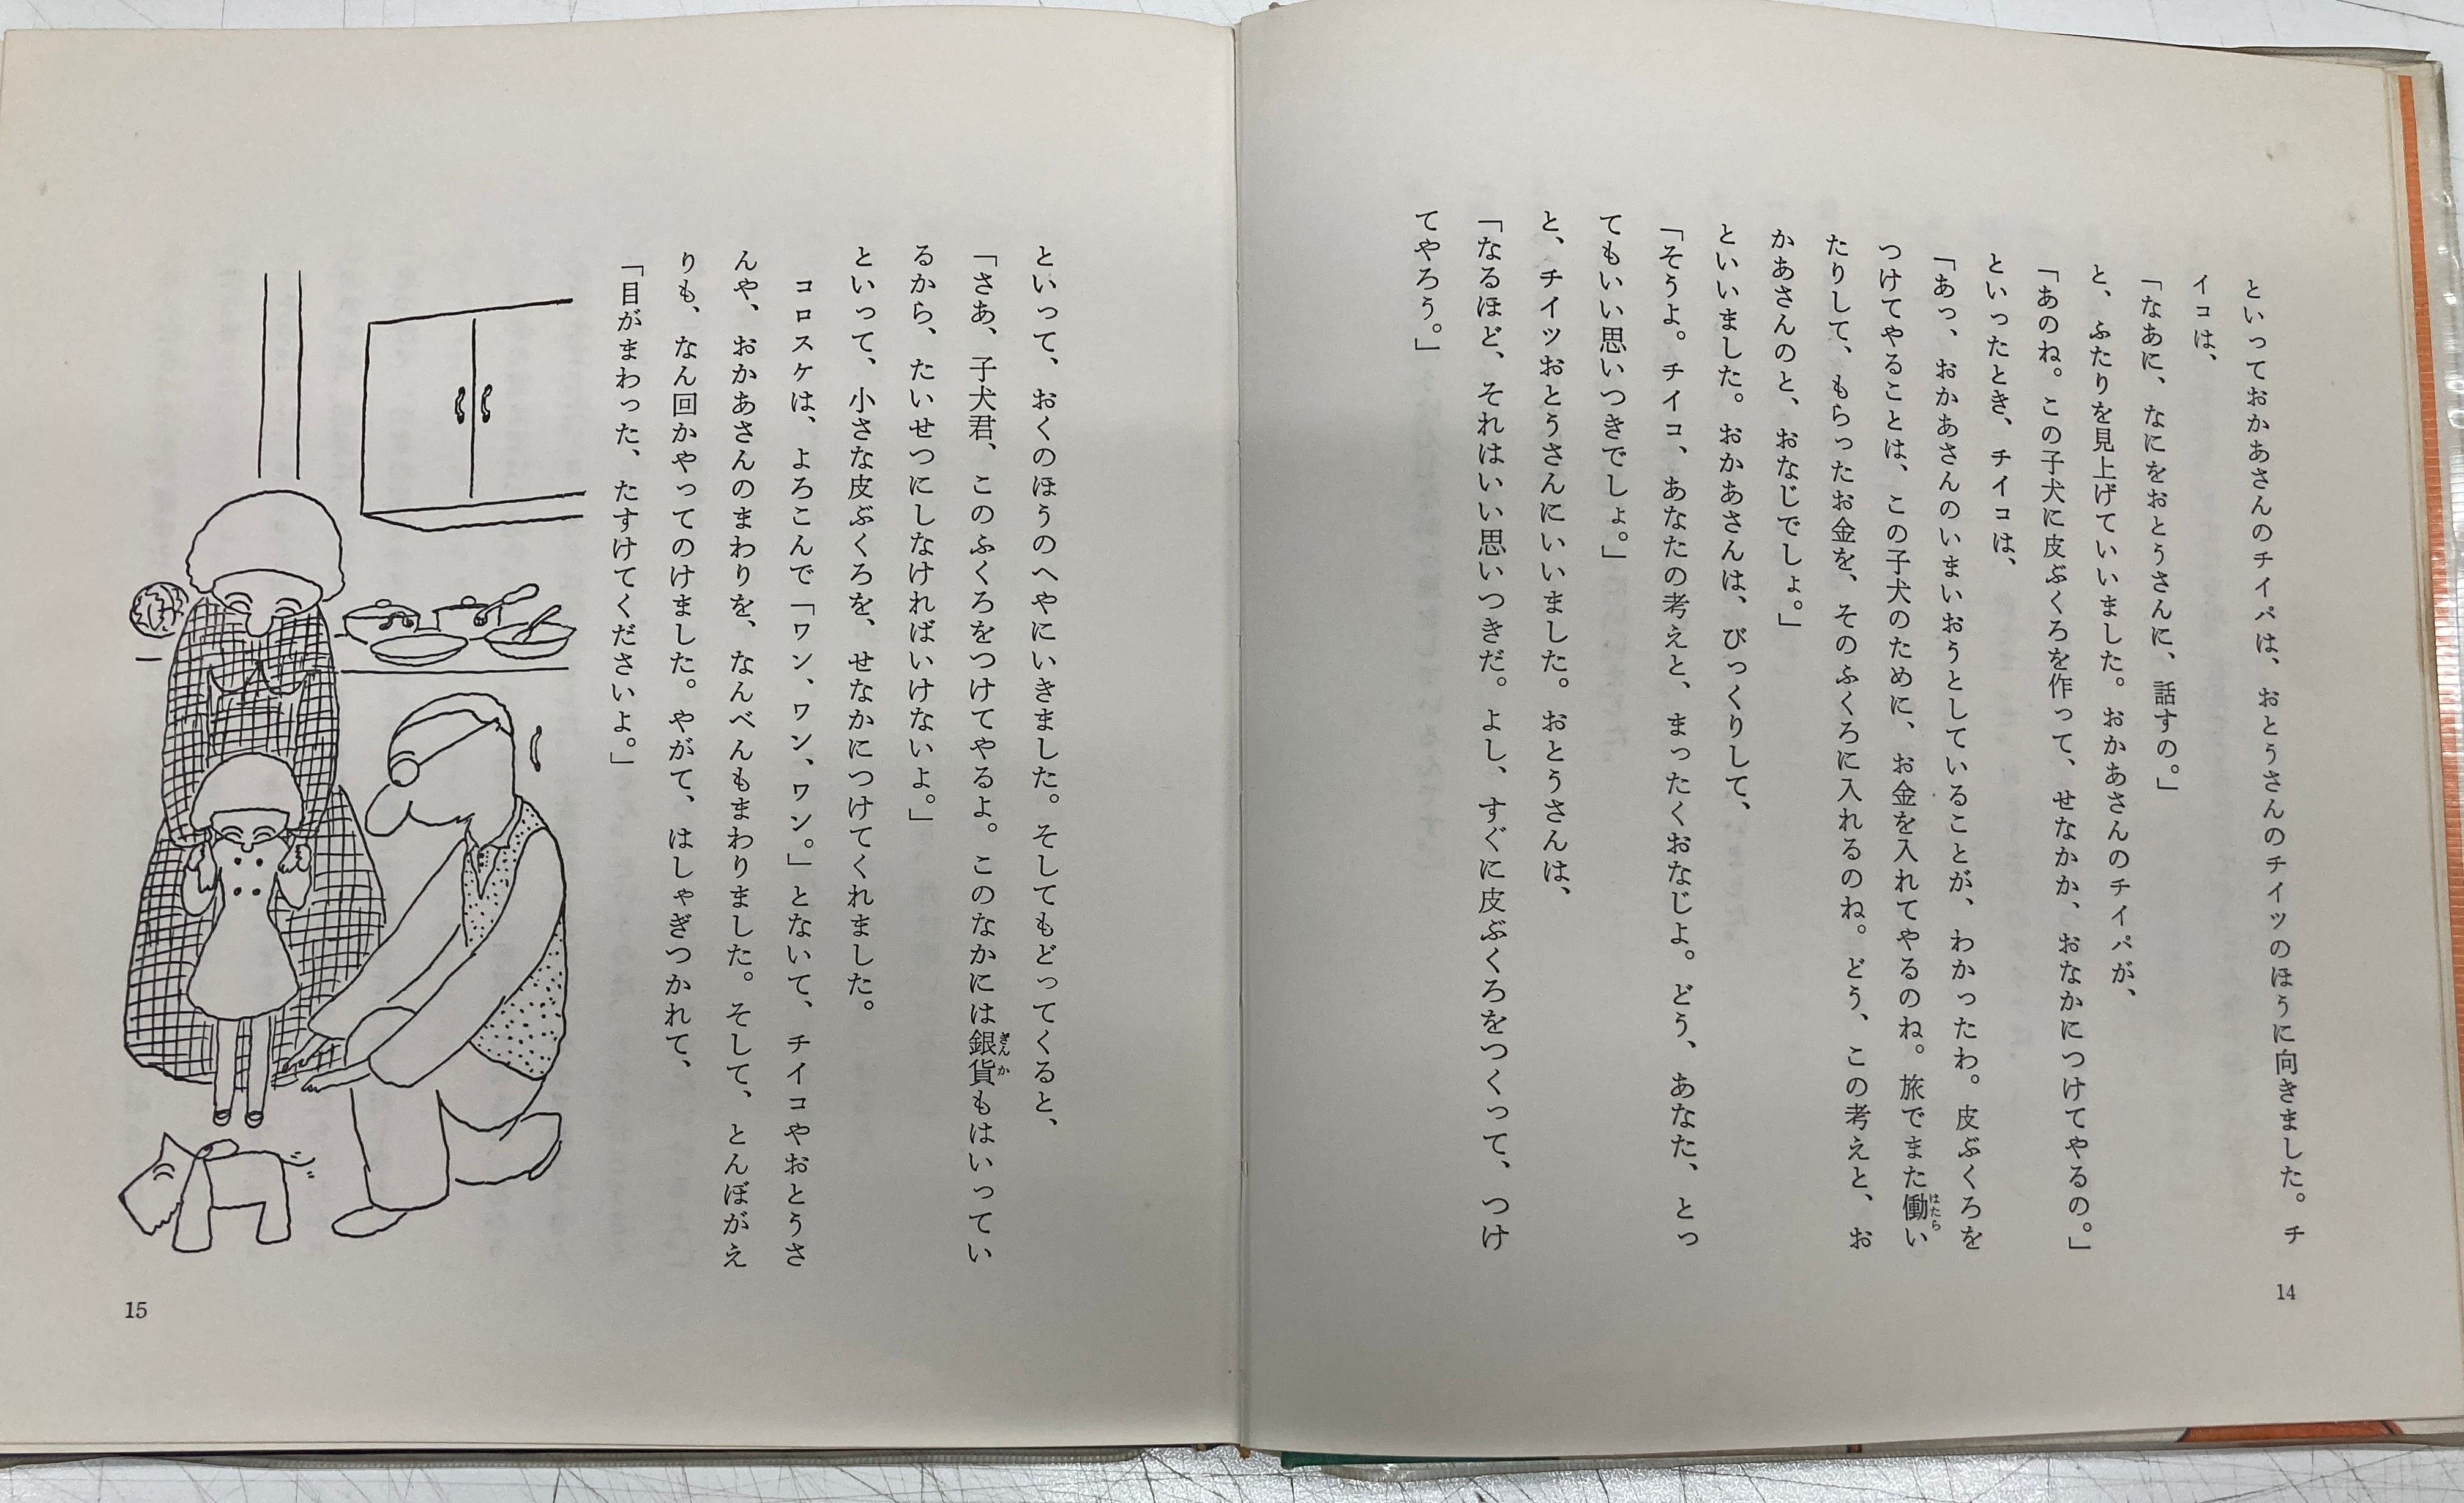 といっておかあさんのチイパは、おとうさんのチイツのほうに向きました。チ
イコは、
「なあに、なにをおとうさんに、話すの。」
と、ふたりを見上げていいました。おかあさんのチイパが、
「あのね。この子犬に皮ぶくろを作って、せなかか、おなかにつけてやるの。」
といったとき、チイコは、
「あっ、おかあさんのいまいおうとしていることが、わかったわ。皮ぶくろを
つけてやることは、この子犬のために、お金を入れてやるのね。旅でまた働い
はたら
たりして、もらったお金を、そのふくろに入れるのね。どう、この考えと、お
かあさんのと、おなじでしょ。」
といいました。おかあさんは、びっくりして、
「そうよ。チイコ、あなたの考えと、まったくおなじよ。どう、あなた、とっ
てもいい思いつきでしょ。」
と、チイツおとうさんにいいました。おとうさんは、
「なるほど、それはいい思いつきだ。よし、すぐに皮ぶくろをつくって、つけ
てやろう。」
14
といって、おくのほうのへやにいきました。そしてもどってくると、
「さあ、子犬君、このふくろをつけてやるよ。このなかには銀貨もはいってい
ぎんか
るから、たいせつにしなければいけないよ。」
といって、小さな皮ぶくろを、せなかにつけてくれました。
コロスケは、よろこんで「ワン、ワン、ワン。」とないて、チイコやおとうさ
んや、おかあさんのまわりを、なんべんもまわりました。そして、とんぼがえ
りも、なん回かやってのけました。やがて、はしゃぎつかれて、
「目がまわった、たすけてくださいよ。」
15